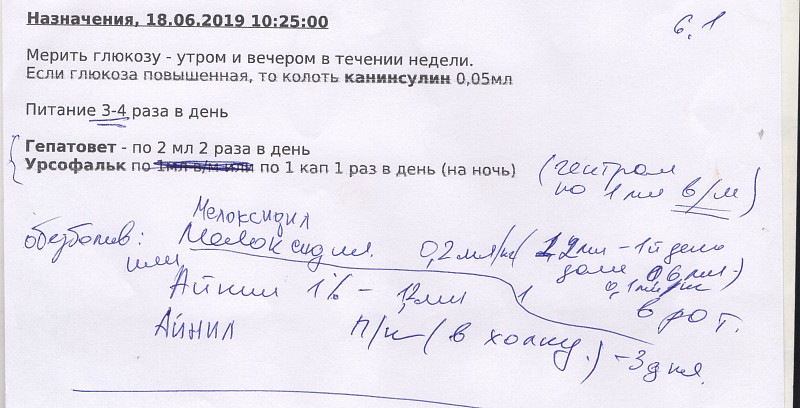 Назначения, 18.06.2019 10:25:00
6.1
Мерить глюкозу - утром и вечером в течении недели.
Если глюкоза повышенная, то колоть канинсулин 0,05мл
Питание 3-4 раза в день
Гепатовет - по 2 мл 2 раза в день
Урсофальк по 1мл в/м или по 1 кап 1 раз в день (на ночь)
(гептрал
по 1 мл в/м)
Мелоксидил
обезболив: Мелоксидил 0,2мл/кг (1,2мл - 1й день
или далее 0,6 мл)
0,1мл/кг
Айнил 1% - 1,2мл
в рот.
Айнил п/к (в холку.) - 3 дня.